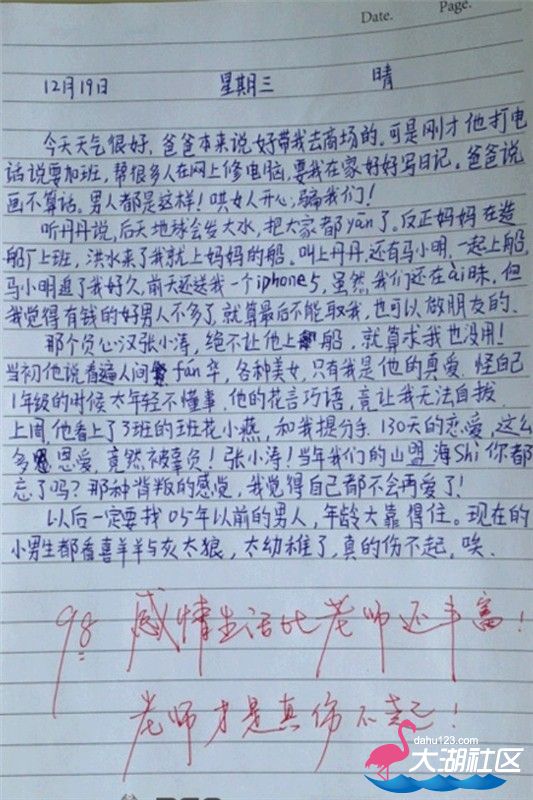 Date.
Page.
12月19日 星期三 晴
今天天气很好,爸爸本来说好带我去商场的。可是刚才他打电
话说要加班,帮很多人在网上修电脑,要我在家好好写日记。爸爸说
画不算话。男人都是这样!哄女人开心,骗我们!
听丹丹说,后天地球会发大水,把大家都yān了。反正妈妈在造
船厂上班,洪水来了我就上妈妈的船。叫上丹丹,还有马小明,一起上船,
马小明追了我好久,前天还送我一个iphone5,虽然我们还在ài昧。但
我觉得有钱的好男人不多了,就算最后不能取我,也可以做朋友的。
那个负心汉张小涛,绝不让他上船,就算求我也没用!
当初他说看遍人间fán华,各种美女,只有我是他的真爱。怪自己
1年级的时候太年轻不懂事,他的花言巧语,竟让我无法自拔
上周,他看上了3班的班花小燕,和我提分手.130天的恋爱,这么
多恩爱,竟然被辜负!张小涛!当年我们的山盟海Shì你都
忘了吗?那种背叛的感觉,我觉得自己都不会再爱了!
以后一定要找05年以前的男人,年龄大靠得住。现在的
小男生都看喜羊羊与灰太狼,太幼稚了,真的伤不起,唉、
98 感情生活比老师还丰富!
老师才是真伤不起!
dahu123.com
大湖社区